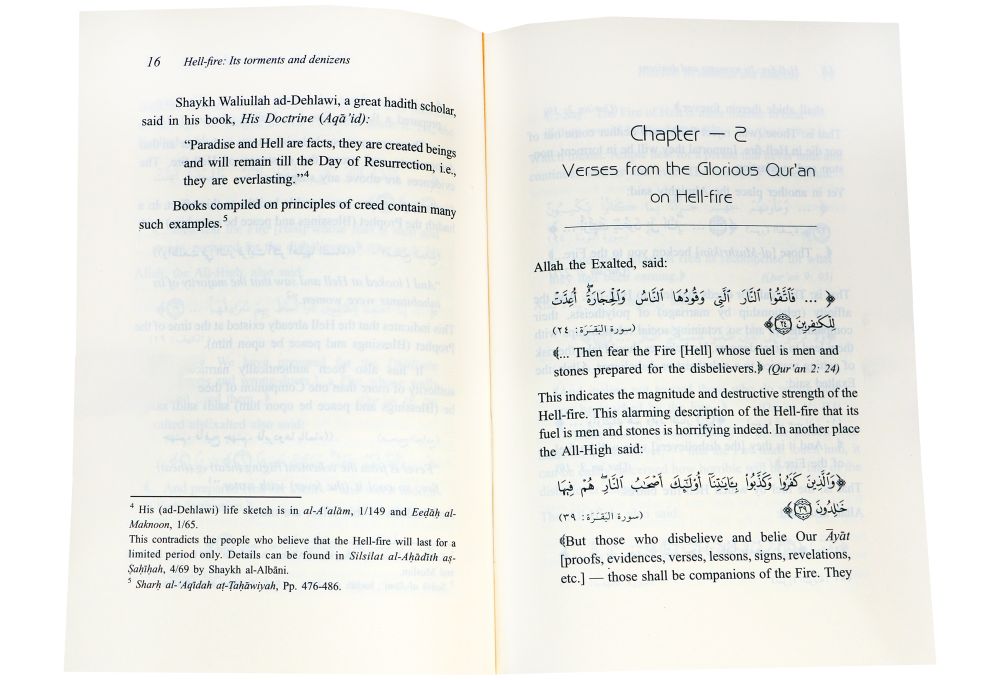 16 Hell-fire: Its torments and denizens
Shaykh Waliullah ad-Dehlawi, a great hadith scholar,
said in his book, His Doctrine (Aqā'id):
“Paradise and Hell are facts, they are created beings
and will remain till the Day of Resurrection, i.e.,
they are everlasting.”4
Books compiled on principles of creed contain many
such examples.5
4 His (ad-Dehlawi) life sketch is in al-A'alām, 1/149 and Eeḍāḥ al-
Maknoon, 1/65.
This contradicts the people who believe that the Hell-fire will last for a
limited period only. Details can be found in Silsilat al-Aḥādīth aṣ-
Ṣaḥīḥah, 4/69 by Shaykh al-Albâni.
5 Sharḥ al-'Aqīdah aṭ-Ṭaḥāwiyah, Pp. 476-486.
Chapter — 2
Verses from the Glorious Qur'an
on Hell-fire
Allah the Exalted, said:
﴿ ... فَٱتَّقُوا۟ ٱلنَّارَ ٱلَّتِى وَقُودُهَا ٱلنَّاسُ وَٱلْحِجَارَةُ ۖ أُعِدَّتْ
لِلْكَـٰفِرِينَ ٢٤ ﴾ (سورة البَقَرَة: ٢٤)
﴾... Then fear the Fire [Hell] whose fuel is men and
stones prepared for the disbelievers.﴿ (Qur'an 2: 24)
This indicates the magnitude and destructive strength of the
Hell-fire. This alarming description of the Hell-fire that its
fuel is men and stones is horrifying indeed. In another place
the All-High said:
﴿وَٱلَّذِينَ كَفَرُوا۟ وَكَذَّبُوا۟ بِـَٔايَـٰتِنَآ أُو۟لَـٰٓئِكَ أَصْحَـٰبُ ٱلنَّارِ ۖ هُمْ فِيهَا
خَـٰلِدُونَ ٣٩ ﴾ (سورة البَقَرَة: ٣٩)
﴾But those who disbelieve and belie Our Āyāt
[proofs, evidences, verses, lessons, signs, revelations,
etc.] — those shall be companions of the Fire. They